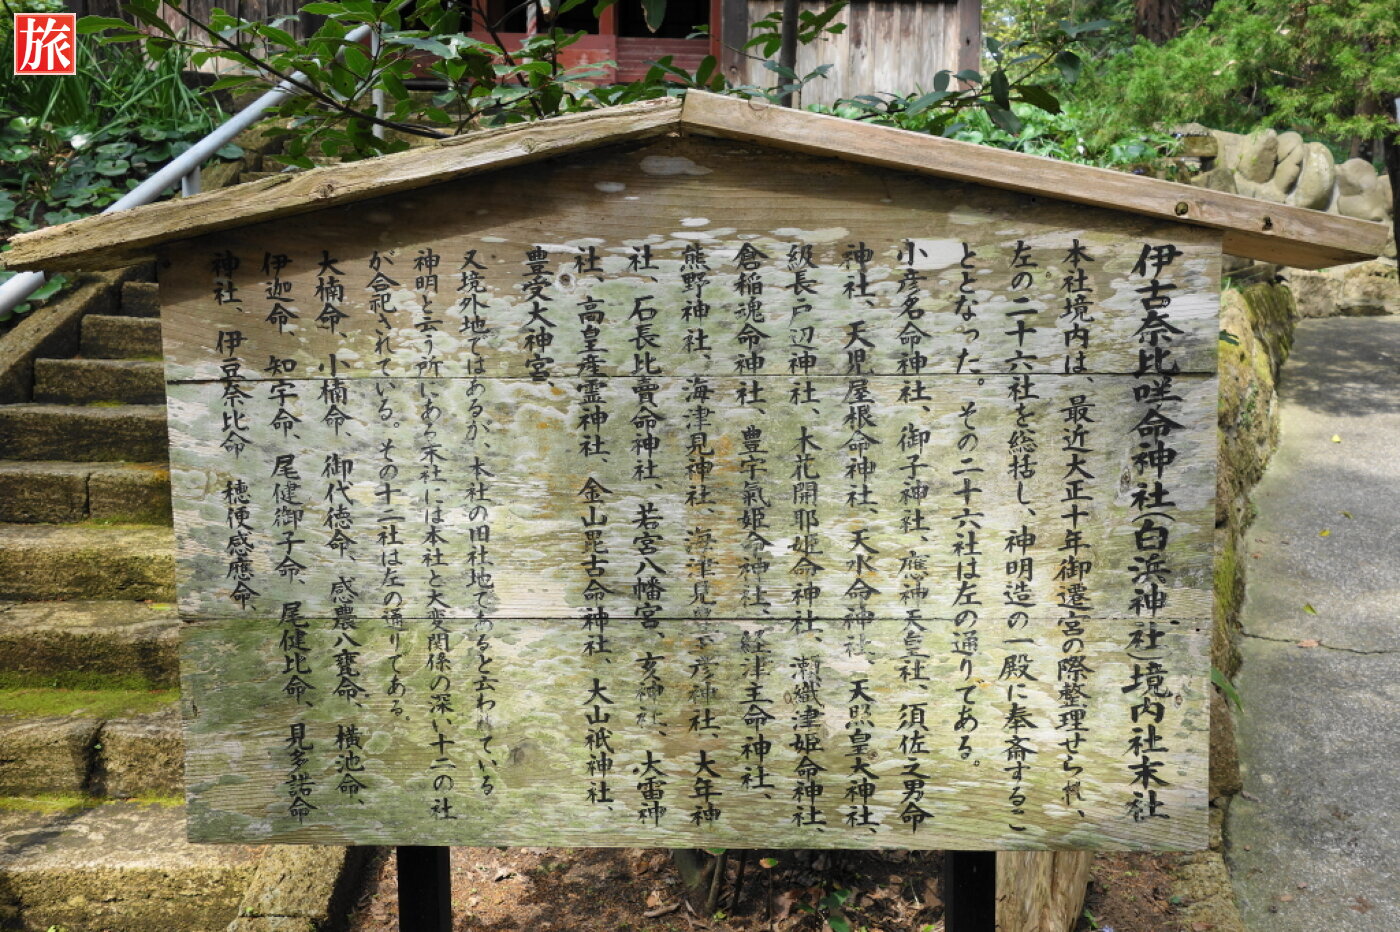 旅
伊古奈比咩命神社(白浜神社)境内社末社
本社境内は、最近大正十年御遷宮の際整理せられ、
左の二十六社を総括し、神明造の一殿に奉斎するこ
ととなった。その二十六社は左の通りである。
小彦名命神社、御子神社、應神天皇社、須佐之男命
神社、天児屋根命神社、天水命神社、天照皇大神社、
級長戸辺神社、木花開耶姫命神社、瀬織津姫命神社、
倉稲魂命神社、豊宇氣姫命神社、経津主命神社、
熊野神社、海津見神社、海津見豊玉彦神社、大年神
社、石長比賣命神社、若宮八幡宮、亥神社、大雷神
社、高皇産霊神社、金山毘古命神社、大山祇神社、
豊受大神宮
又境外地ではあるが、本社の旧社地であると云われている
神明と云う所にある末社には本社と大変関係の深い十二の社
が合祀されている。その十二社は左の通りである。
大楠命、小楠命、御代徳命、感農八甕命、横池命、
伊迦命、知宇命、尾健御子命、尾健比命、見多諾命
神社、伊豆奈比命 穂便感應命、